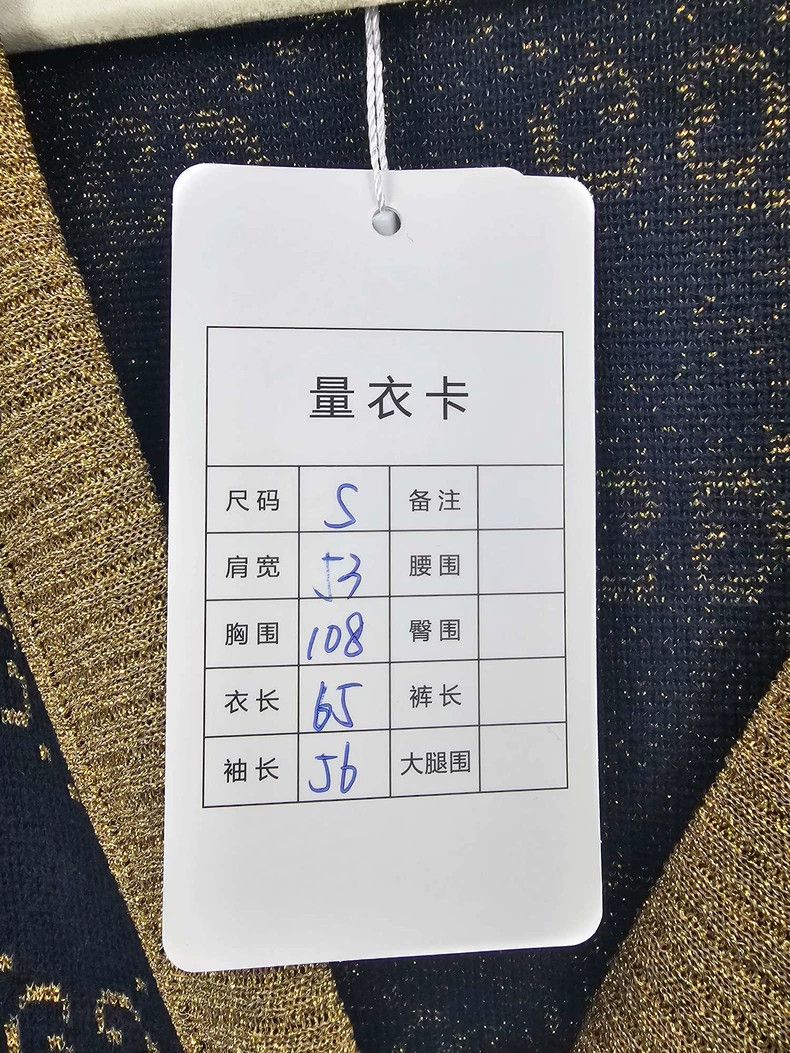 量衣卡
尺码 S 备注
肩宽 53 腰围
胸围 108 臀围
衣长 65 裤长
袖长 56 大腿围